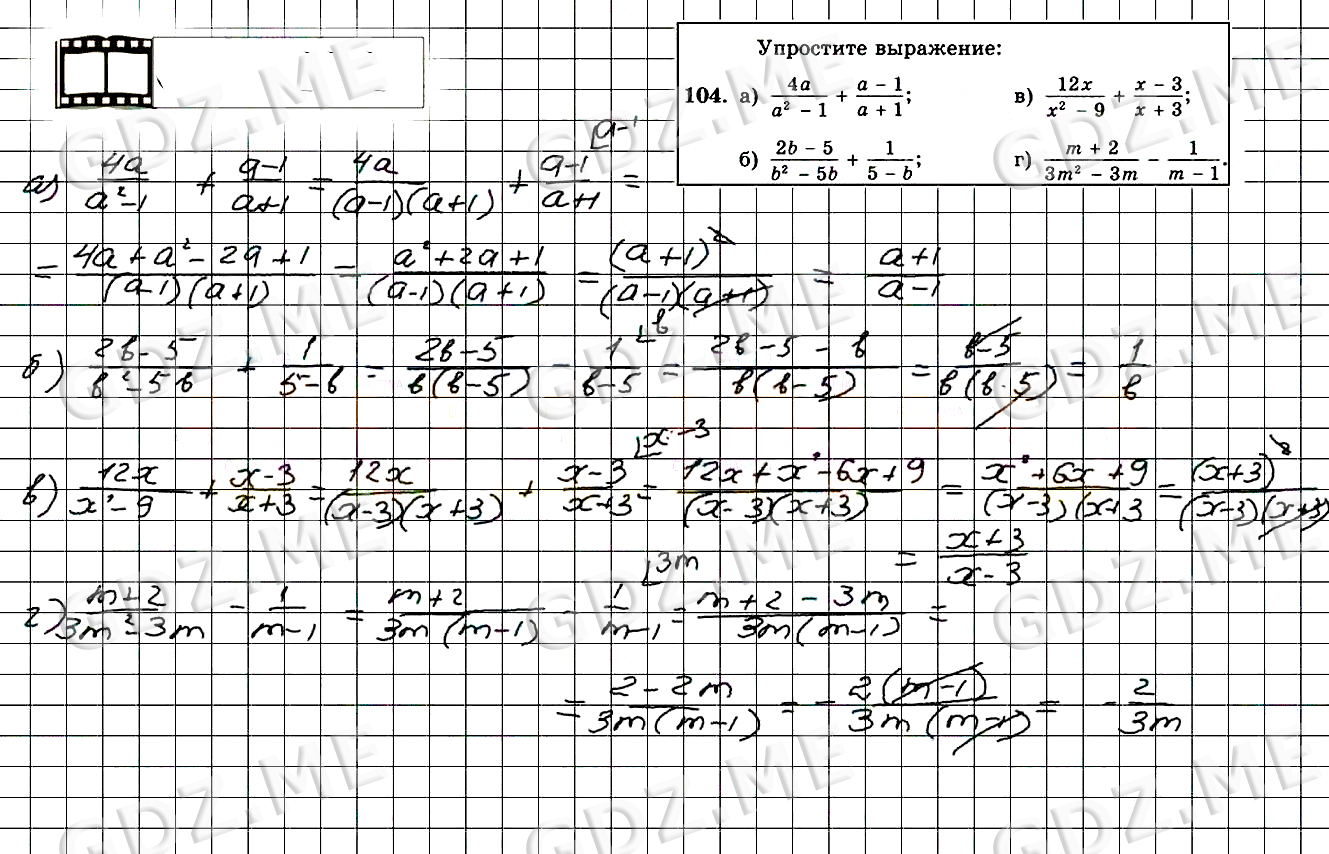 Упростите выражение:
104. а) 4a/(a² − 1) + (a − 1)/(a + 1); в) 12x/(x² − 9) + (x − 3)/(x + 3);
б) (2b − 5)/(b² − 5b) + 1/(5 − b); г) (m + 2)/(3m² − 3m) − 1/(m − 1).
а) 4a/(a²-1) + (a-1)/(a+1) = 4a/((a-1)(a+1)) + (a-1)/(a+1) ⌊a-1 =
= (4a + a² - 2a + 1)/((a-1)(a+1)) = (a² + 2a + 1)/((a-1)(a+1)) = (a+1)²/((a-1)(a+1)) = (a+1)/(a-1)
б) (2b-5)/(b²-5b) + 1/(5-b) = (2b-5)/(b(b-5)) - 1/(b-5) ⌊b = (2b-5-b)/(b(b-5)) = (b-5)/(b(b-5)) = 1/b
в) 12x/(x²-9) + (x-3)/(x+3) = 12x/((x-3)(x+3)) + (x-3)/(x+3) ⌊x-3 = (12x + x² - 6x + 9)/((x-3)(x+3)) = (x² + 6x + 9)/((x-3)(x+3 = (x+3)²/((x-3)(x+3))
= (x+3)/(x-3)
г) (m+2)/(3m²-3m) - 1/(m-1) = (m+2)/(3m(m-1)) - 1/(m-1) ⌊3m = (m+2-3m)/(3m(m-1)) =
= (2-2m)/(3m(m-1)) = - 2(m-1)/(3m(m-1)) = - 2/(3m)
GDZ.ME GDZ.ME GDZ.ME
GDZ.ME GDZ.ME GDZ.ME
GDZ.ME GDZ.ME GDZ.ME
GDZ.ME GDZ.ME GDZ.ME